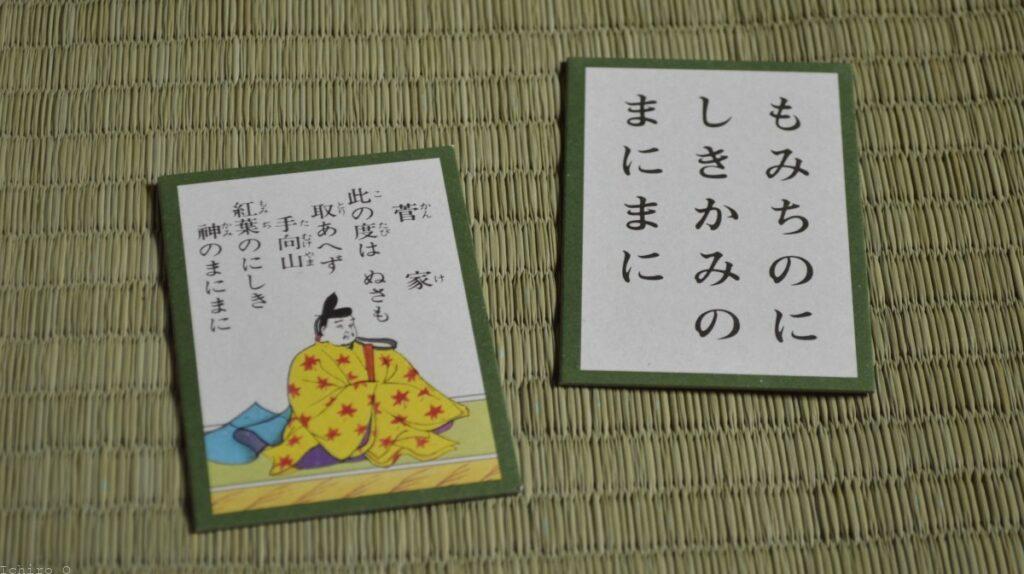 菅家
かんけ
此の度は ぬさも
こ たび
取あへず
とり
手向山
たむけやま
紅葉のにしき
もみぢ
神のまにまに
かみ
もみちのに
しきかみの
まにまに
Ichiro_O